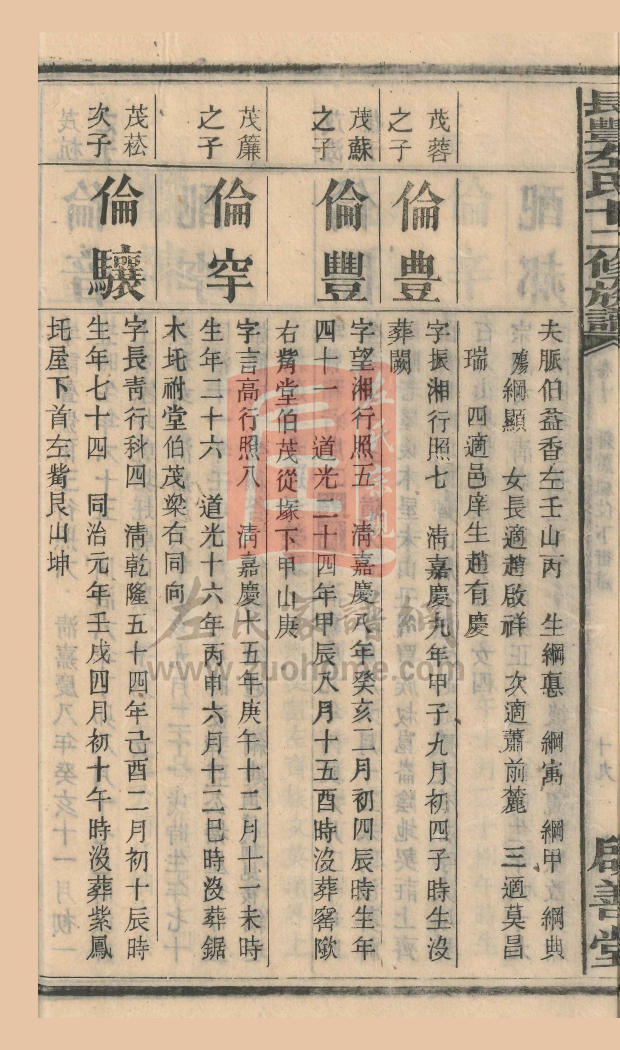 長豐左氏十二修族譜
啟善堂
夫脈伯益香左壬山丙 生綱惪 綱寓 綱甲 綱典
殤綱顯 女長適趙啟祥 次適蕭前麓 三適莫昌
瑞 四適邑庠生趙有慶
茂蓉之子
倫豊
字振湘行照七 清嘉慶九年甲子九月初四子時生沒
葬闕
茂蘇之子
倫豐
字望湘行照五 清嘉慶八年癸亥二月初四辰時生年
四十一 道光二十四年甲辰八月十五酉時沒葬窑
右觜堂伯茂從塚下甲山庚
茂簾之子
倫穻
字言高行照八 清嘉慶十五年庚午十二月十一未時
生年二十六 道光十六年丙申六月十二巳時沒葬鋸
木圫祔堂伯茂梁右同向
茂菘次子
倫驤
字長靑行科四 清乾隆五十四年己酉二月初十辰時
生年七十四 同治元年壬戌四月初十午時沒葬紫鳳
圫屋下首左觜艮山坤
左氏家譜網
www.zuohome.com